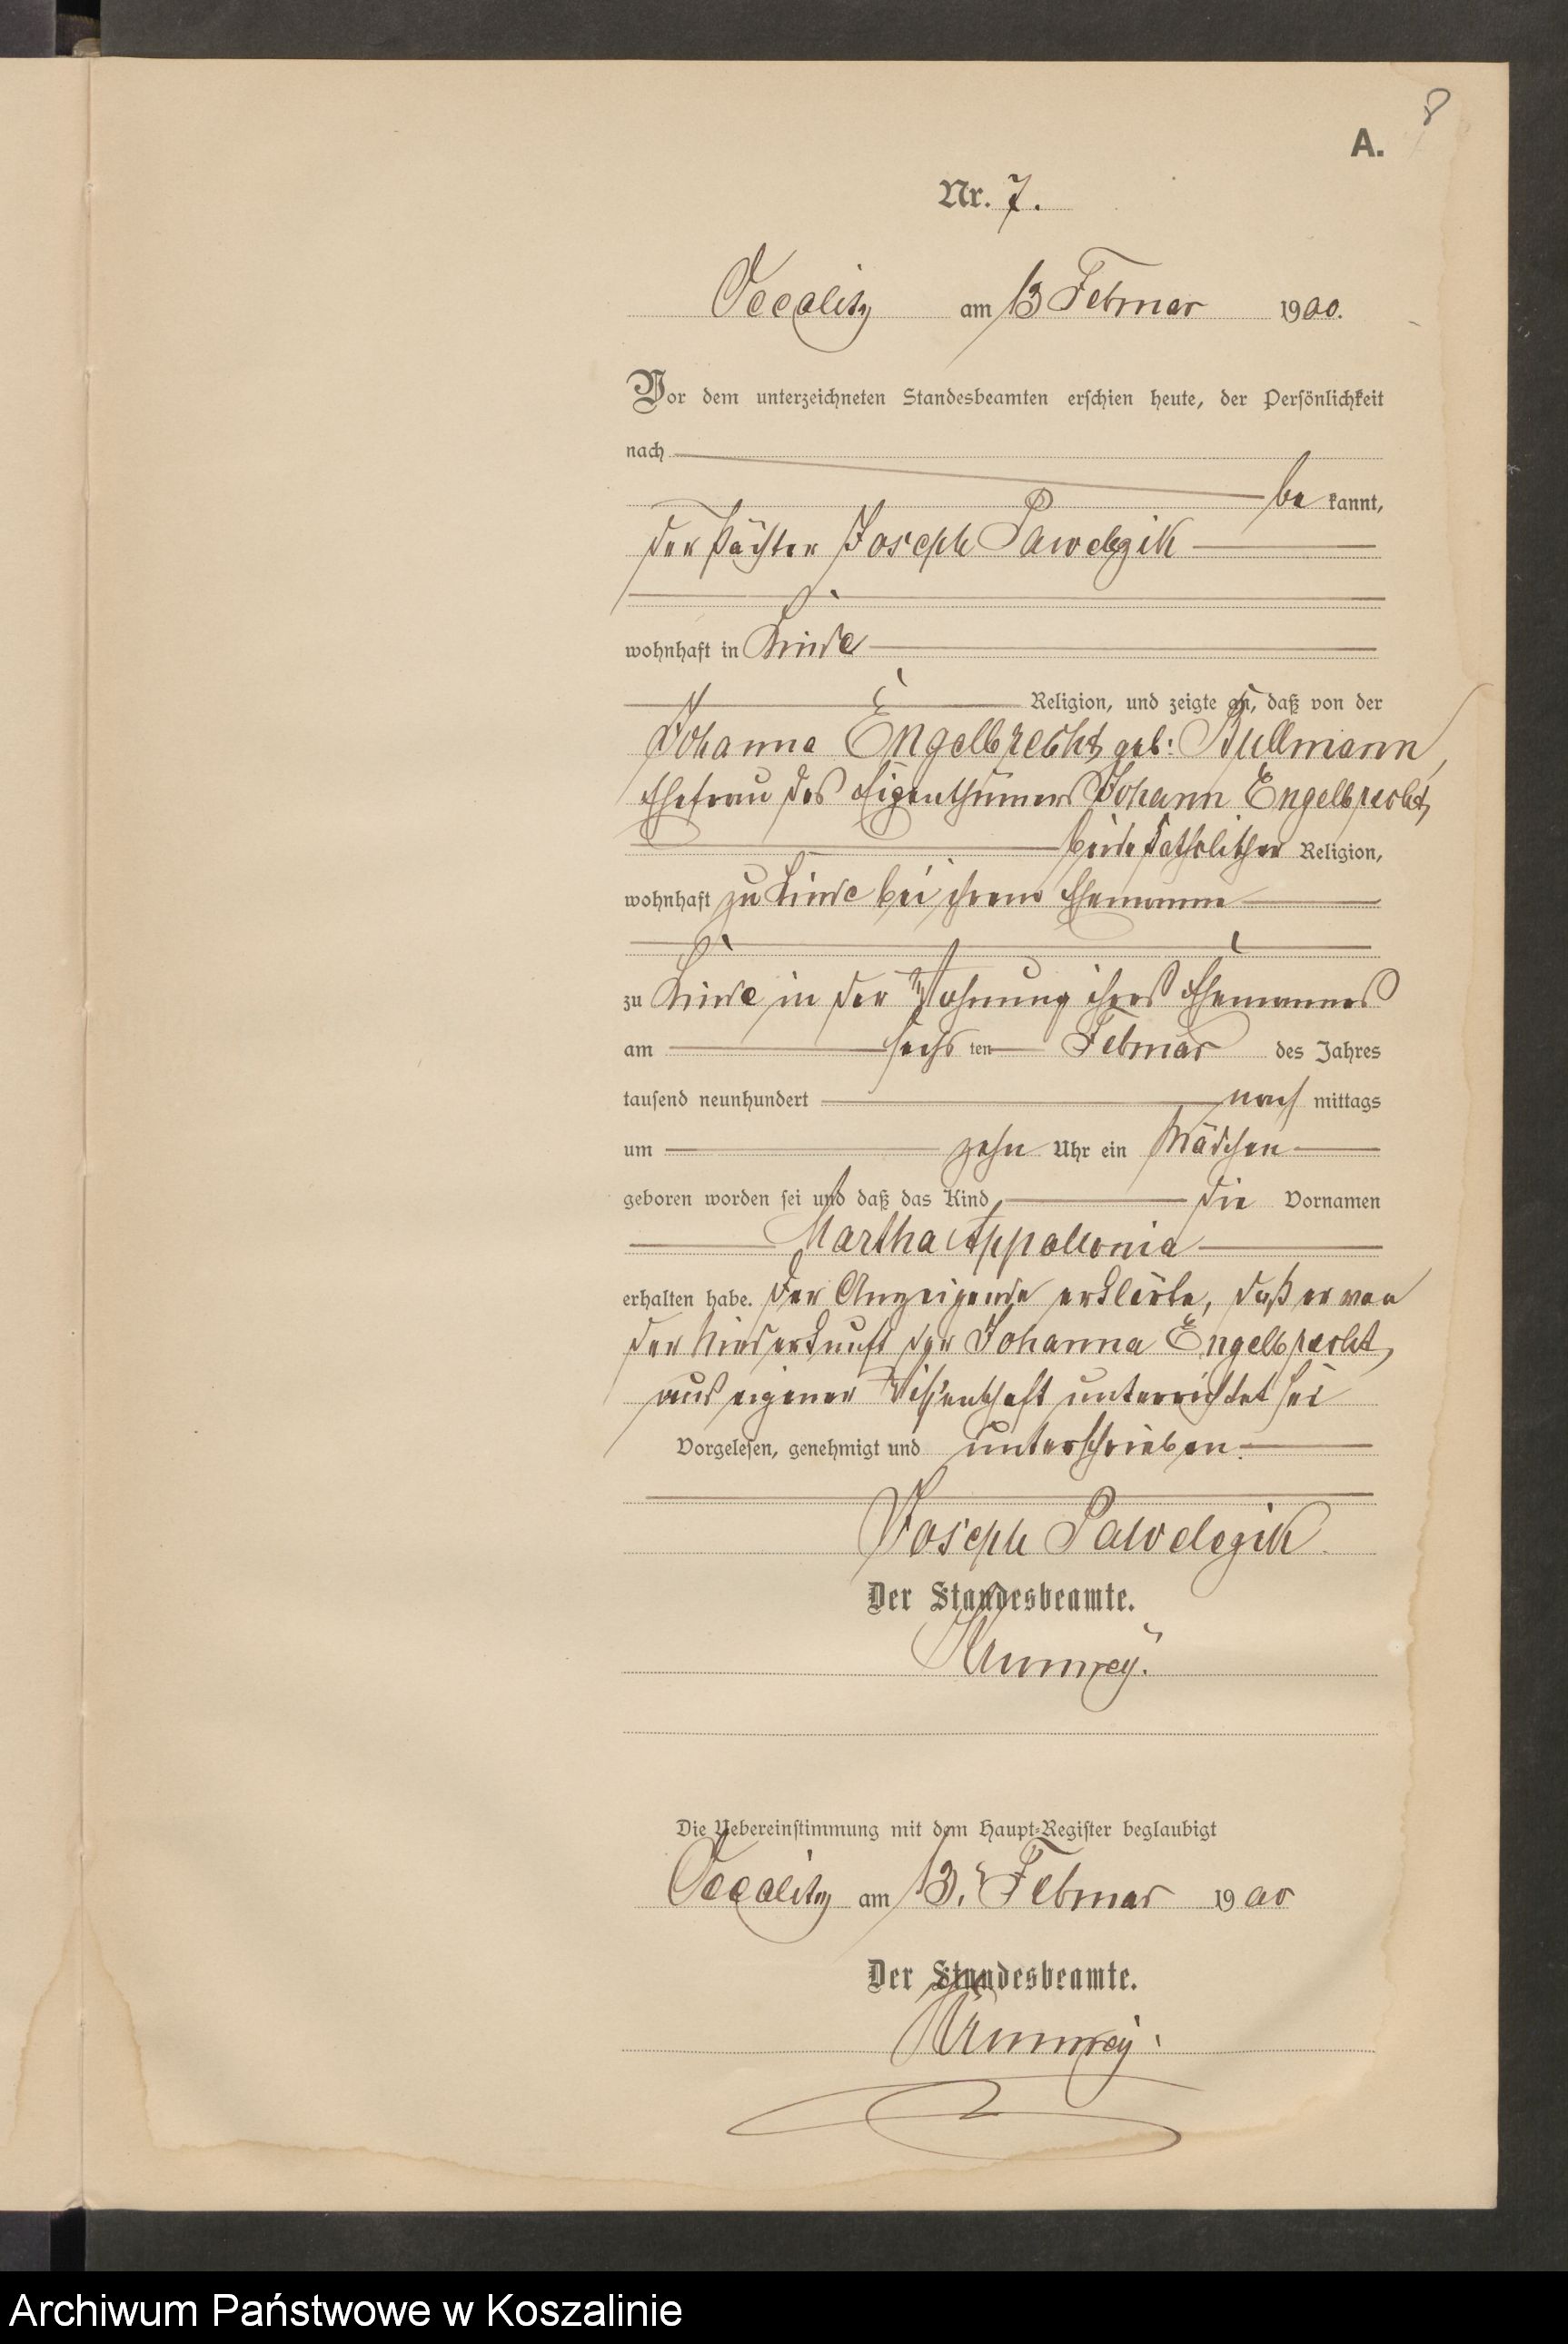 8
A.
Nr. 7.
Occalitz am 13 Februar 1900.
Vor dem unterzeichneten Standesbeamten erschien heute, der Persönlichkeit
nach
be kannt,
der Pächter Joseph Pawelczik
wohnhaft in Linde
Religion, und zeigte an, daß von der
Johanna Engelbrecht geb: Bullmann,
Ehefrau des Eigenthümers Johann Engelbrecht,
beide katholischer Religion,
wohnhaft zu Linde bei ihrem Ehemanne
zu Linde in der Wohnung ihres Ehemannes
am sechs ten Februar des Jahres
tausend neunhundert nach mittags
um zehn Uhr ein Mädchen
geboren worden sei und daß das Kind die Vornamen
Martha Appollonia
erhalten habe. Der Anzeigende erklärte, daß er von
der Niederkunft der Johanna Engelbrecht,
aus eigener Wissenschaft unterrichtet sei
Vorgelesen, genehmigt und unterschrieben.
Joseph Pawelczik
Der Standesbeamte.
Die Uebereinstimmung mit dem Haupt-Register beglaubigt
Occalitz am 13. Februar 1900
Der Standesbeamte.
Archiwum Państwowe w Koszalinie